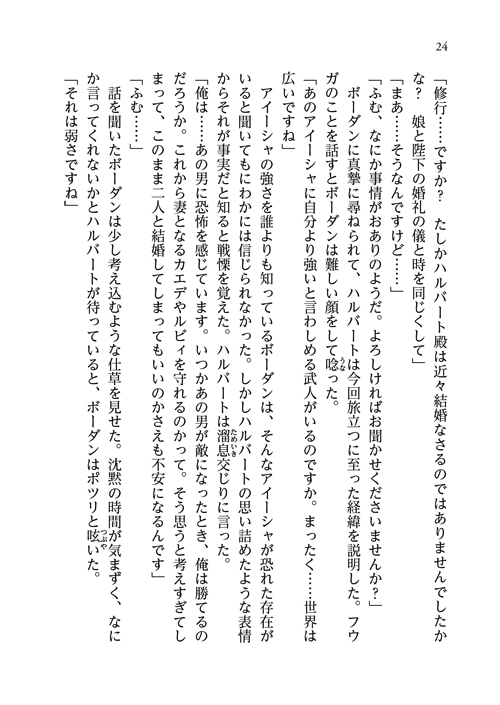 24
「修行……ですか？　たしかハルバート殿は近々結婚なさるのではありませんでしたか
な？　娘と陛下の婚礼の儀と時を同じくして」
「まあ……そうなんですけど……」
「ふむ、なにか事情がおありのようだ。よろしければお聞かせくださいませんか？」
ボーダンに真摯に尋ねられて、ハルバートは今回旅立つに至った経緯を説明した。フウ
ガのことを話すとボーダンは難しい顔をして唸った。
「あのアイーシャに自分より強いと言わしめる武人がいるのですか。まったく……世界は
広いですね」
アイーシャの強さを誰よりも知っているボーダンは、そんなアイーシャが恐れた存在が
いると聞いてもにわかには信じられなかった。しかしハルバートの思い詰めたような表情
からそれが事実だと知ると戦慄を覚えた。ハルバートは溜息交じりに言った。
「俺は……あの男に恐怖を感じています。いつかあの男が敵になったとき、俺は勝てるの
だろうか。これから妻となるカエデやルビィを守れるのかって。そう思うと考えすぎてし
まって、このまま二人と結婚してしまってもいいのかさえも不安になるんです」
「ふむ……」
話を聞いたボーダンは少し考え込むような仕草を見せた。沈黙の時間が気まずく、なに
か言ってくれないかとハルバートが待っていると、ボーダンはポツリと呟いた。
「それは弱さですね」
うな
ためいき
つぶや